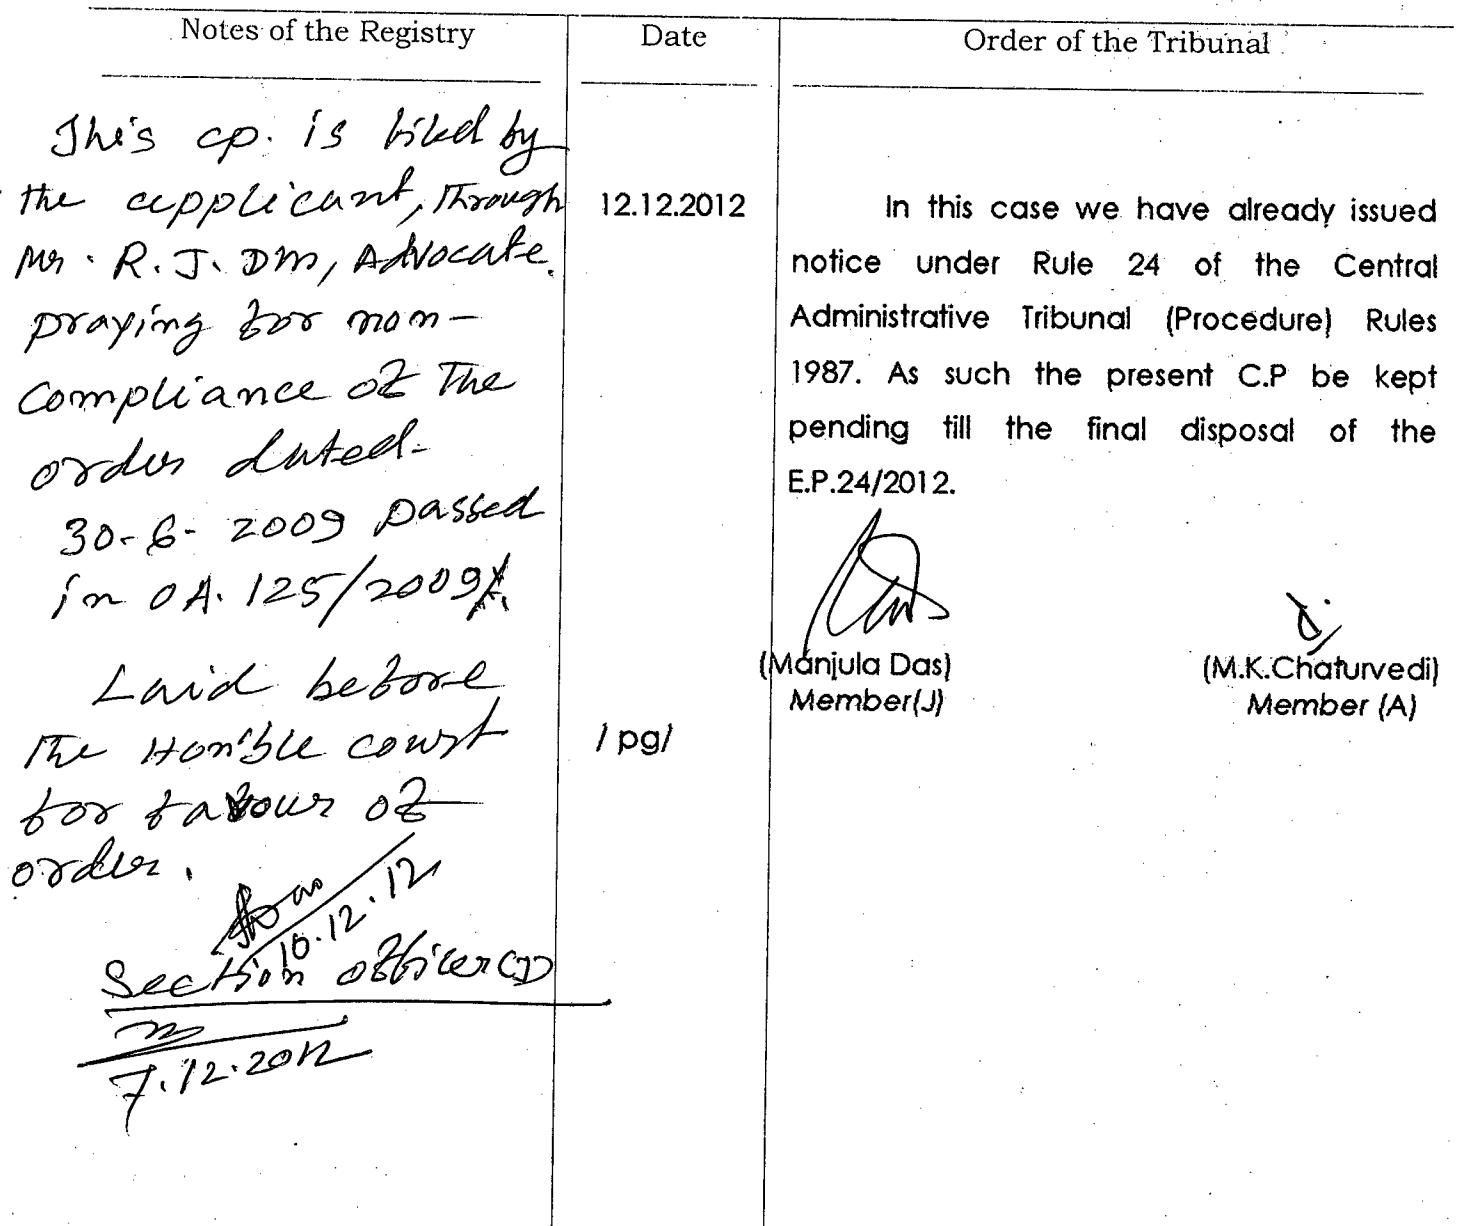 Notes of the Registry
Date
Order of the Tribunal
This cp. is filed by
the applicant, through
Mr. R. J. Das, Advocate.
praying for non-
compliance of the
order dated-
30-6-2009 passed
in OA. 125/2009
Laid before
the Hon'ble court
for favour of
order.
10.12.12
Section officer (J)
7.12.2012
12.12.2012
/ pg/
In this case we have already issued
notice under Rule 24 of the Central
Administrative Tribunal (Procedure) Rules
1987. As such the present C.P be kept
pending till the final disposal of the
E.P.24/2012.
(Manjula Das)
Member(J)
(M.K.Chaturvedi)
Member (A)